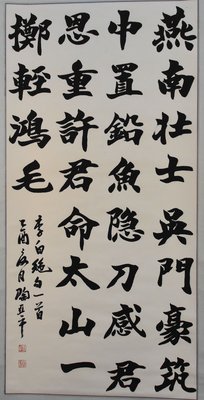 燕南壮士吳門豪筑
中置鉛魚隐刀感君
恩重許君命太山一
擲輕鴻毛
李白絶句一首
乙酉月